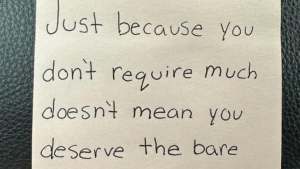 Just because you
don't require much
doesn't mean you
deserve the bare